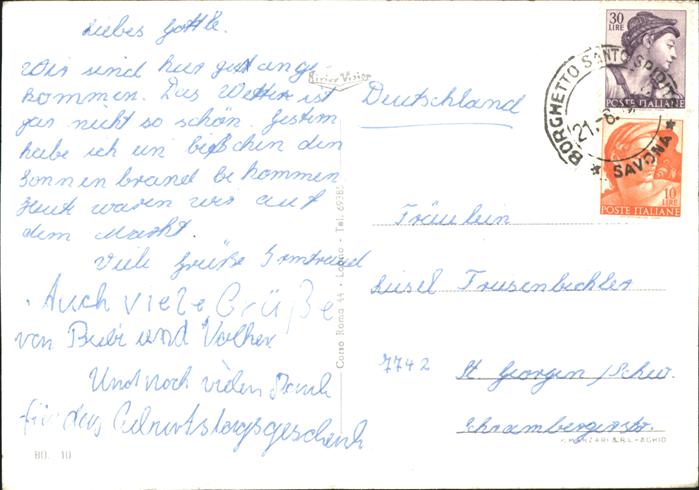 Liebes Gottle.
Wir sind hier gut ange-
kommen. Das Wetter ist
gar nicht so schön. Gestern
habe ich ein bißchen den
Sonnenbrand bekommen
Heut waren wir auf
dem Markt.
Viele Grüße Irmtraud
Auch viele Grüße
von Bubi und Volker
Und noch vielen Dank
für das Geburtstagsgeschenk
BO. 10
Corso Roma 44 - Loano - Tel.
Deutschland
Fräulein
Liesel Trusenbichler
7742 St. Georgen/Schw.
Schrambergerstr.
30 LIRE
POSTE ITALIANE
10 LIRE
POSTE ITALIANE
BORGHETTO SANTO SPIRITO
21.-8.
* SAVONA *